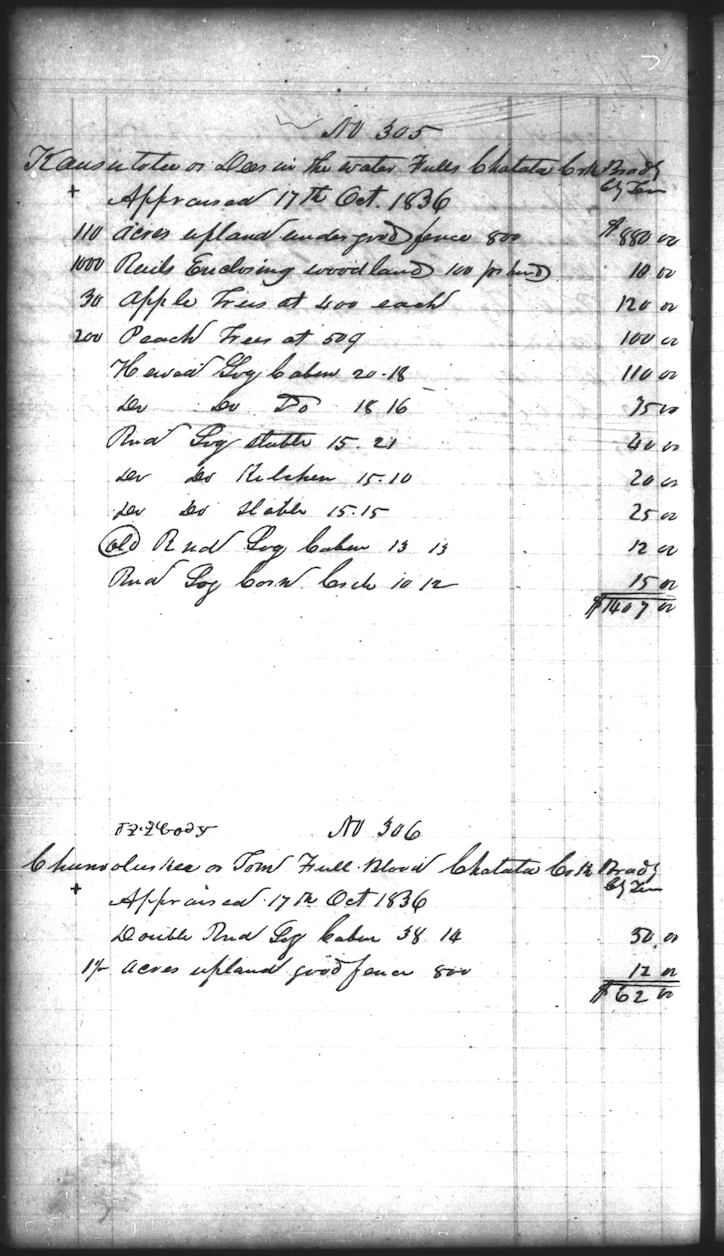 No 305
Kansutotee or Deer in the water Fulls Chatata Crk Brady Cty Ten
+ Appraised 17th Oct. 1836
110 acres upland under good fence 800 $880 00
1000 Rails Enclosing woodland 100 pr hund 10 00
30 Apple Trees at 400 each 120 00
200 Peach Trees at 50¢ 100 00
Hewed Log Cabin 20-18 110 00
Do Do Do 18 16 75 00
Rnd Log Stable 15.21 40 00
Do Do Kitchen 15.10 20 00
Do Do Stable 15.15 25 00
old Rnd Log Cabin 13 13 12 00
Rnd Log Corn Crib 10 12 15 00
$1407 00
No 306
or Tom Full Blood Chatata Crk Brady Cty Ten
+ Appraised 17th Oct 1836
Double Rnd Log Cabin 38 14 50.00
1½ acres upland good fence 800 12 00
$62 00